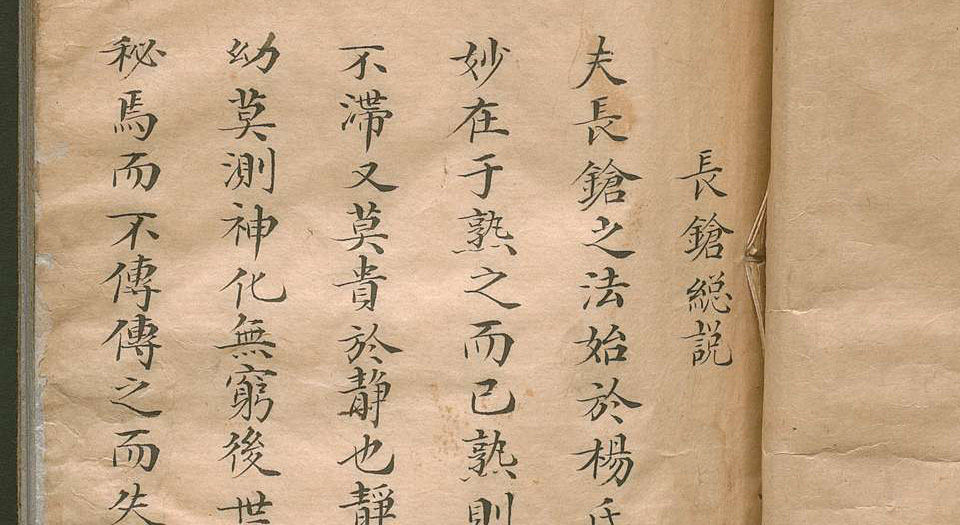 長鎗総説
夫長鎗之法始於楊氏
妙在于熟之而已熟則
不滞又莫貴於静也静
幼莫測神化無窮後世
秘焉而不傳傳之而失